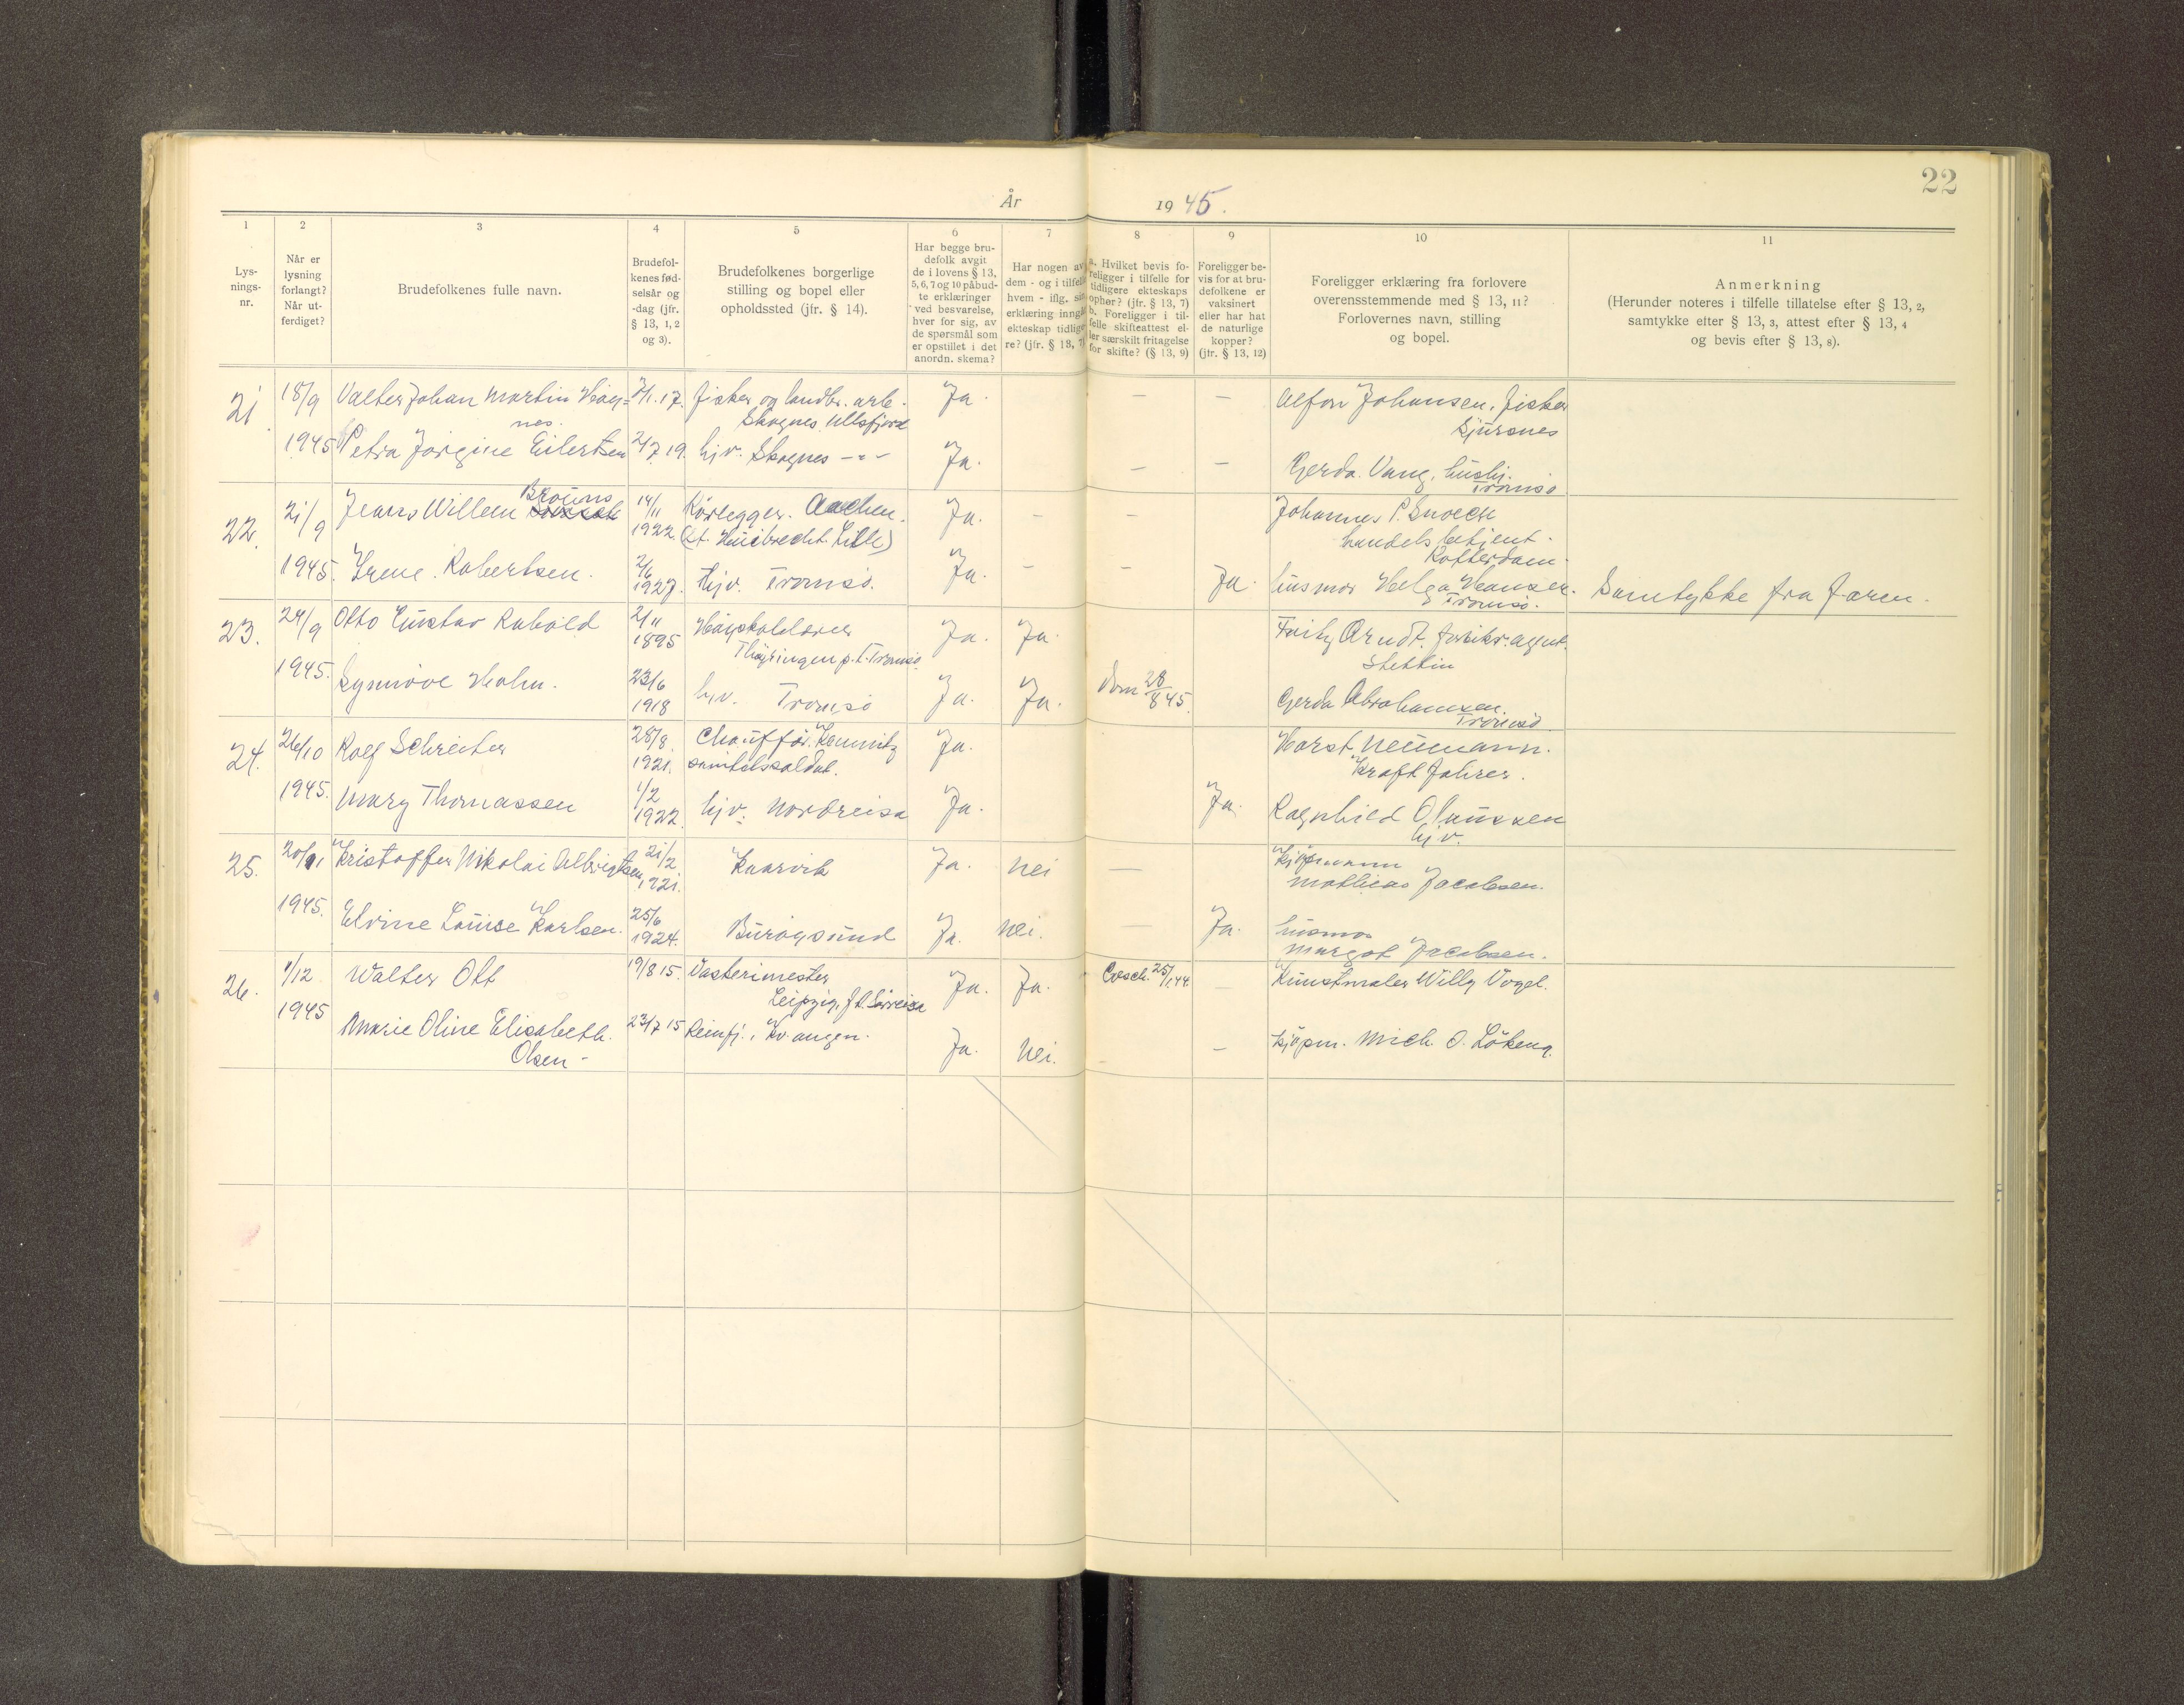 22
År 1945.
1 2 3 4 5 6 7 8 9 10 11
Lys-
nings-
nr.
Når er
lysning
forlangt?
Når ut-
ferdiget?
Brudefolkenes fulle navn.
Brudefol-
kenes fød-
selsår og
-dag (jfr.
§ 13, 1, 2
og 3).
Brudefolkenes borgerlige
stilling og bopel eller
opholdssted (jfr. § 14).
Har begge bru-
defolk avgit
de i lovens § 13,
5, 6, 7 og 10 påbud-
te erklæringer
ved besvarelse,
hver for sig, av
de spørsmål som
er opstillet i det
anordn. skema?
Har nogen av
dem - og i tilfelle
hvem - iflg. sin
erklæring inngått
ekteskap tidlige-
re? (jfr. § 13, 7)
a. Hvilket bevis fo-
religger i tilfelle for
tidligere ekteskaps
ophør? (jfr. § 13, 7)
b. Foreligger i til-
felle skifteattest el-
ler særskilt fritagelse
for skifte? (§ 13, 9)
Foreligger be-
vis for at bru-
defolkene er
vaksinert
eller har hat
de naturlige
kopper?
(jfr. § 13, 12)
Foreligger erklæring fra forlovere
overensstemmende med § 13, 11?
Forlovernes navn, stilling
og bopel.
Anmerkning
(Herunder noteres i tilfelle tillatelse efter § 13, 2,
samtykke efter § 13, 3, attest efter § 13, 4
og bevis efter § 13, 8).
21. 18/9 Valter Johan Martin Høig= 7/1.17. fisker og landbr. arb. Ja. — — Alfon Johansen, fisker
nes. Skognes, Ullsfjord Sjursnes
1945 Petra Jørgine Eilertsen 2/7 19. hjv. Skognes -"- Ja. — — Gerda Vang, hushj.
Tromsø
22. 21/9 Jeans Willem Brouns 14/11 Rørlegger. Aachen. Ja. - - Johannes P. Snoeck
1922. handelsbetjent.
Rotterdam.
1945. Irene Robertsen. 2/6 1927. Hjv. Tromsø. Ja. - - Ja husmor Helga Hansen. Samtykke fra faren.
Tromsø.
23. 24/9 Otto Gustav Rabold 2/11 1895 Høiskolelærer Ja. Ja. Fritz Arndt. agent.
Thüringen p.t. Tromsø. Stettin
1945. Synnøve Holm. 23/6 1918 hjv. Tromsø Ja. Ja. Dom 28/8 45. Gerda Abrahamsen.
Tromsø
24. 26/10 Rolf Schreiter 28/8 1921. Chauffør. Kemnitz Ja. Horst Neumann.
sanitetssoldat. Kraft Fahrer.
1945. Mary Thomassen 1/2 1922. hjv. Nordreisa Ja. Ja. Ragnhild Olaussen
hjv.
25. 20/11 Kristoffer Nikolai Albrigtsen 21/2 1921. Kaarvik Ja. Nei — Kjøpmann
Mathias Jacobsen.
1945. Elvine Louise Karlsen. 25/6 1924. Burøysund Ja. Nei. — Ja. husmor
Margot Jacobsen.
26. 1/12 Walter Ott 19/8 15. Ja. Ja. 25/1.44. — Kunstmaler Willy Vogel.
Leipzig, f.t. Sørreisa
1945 Marie Oline Elisabeth. 23/7 15 Reinfj., Kv. angen. Ja. Nei. - — Kjøpm. Mich. O. Lökeng.
Olsen -